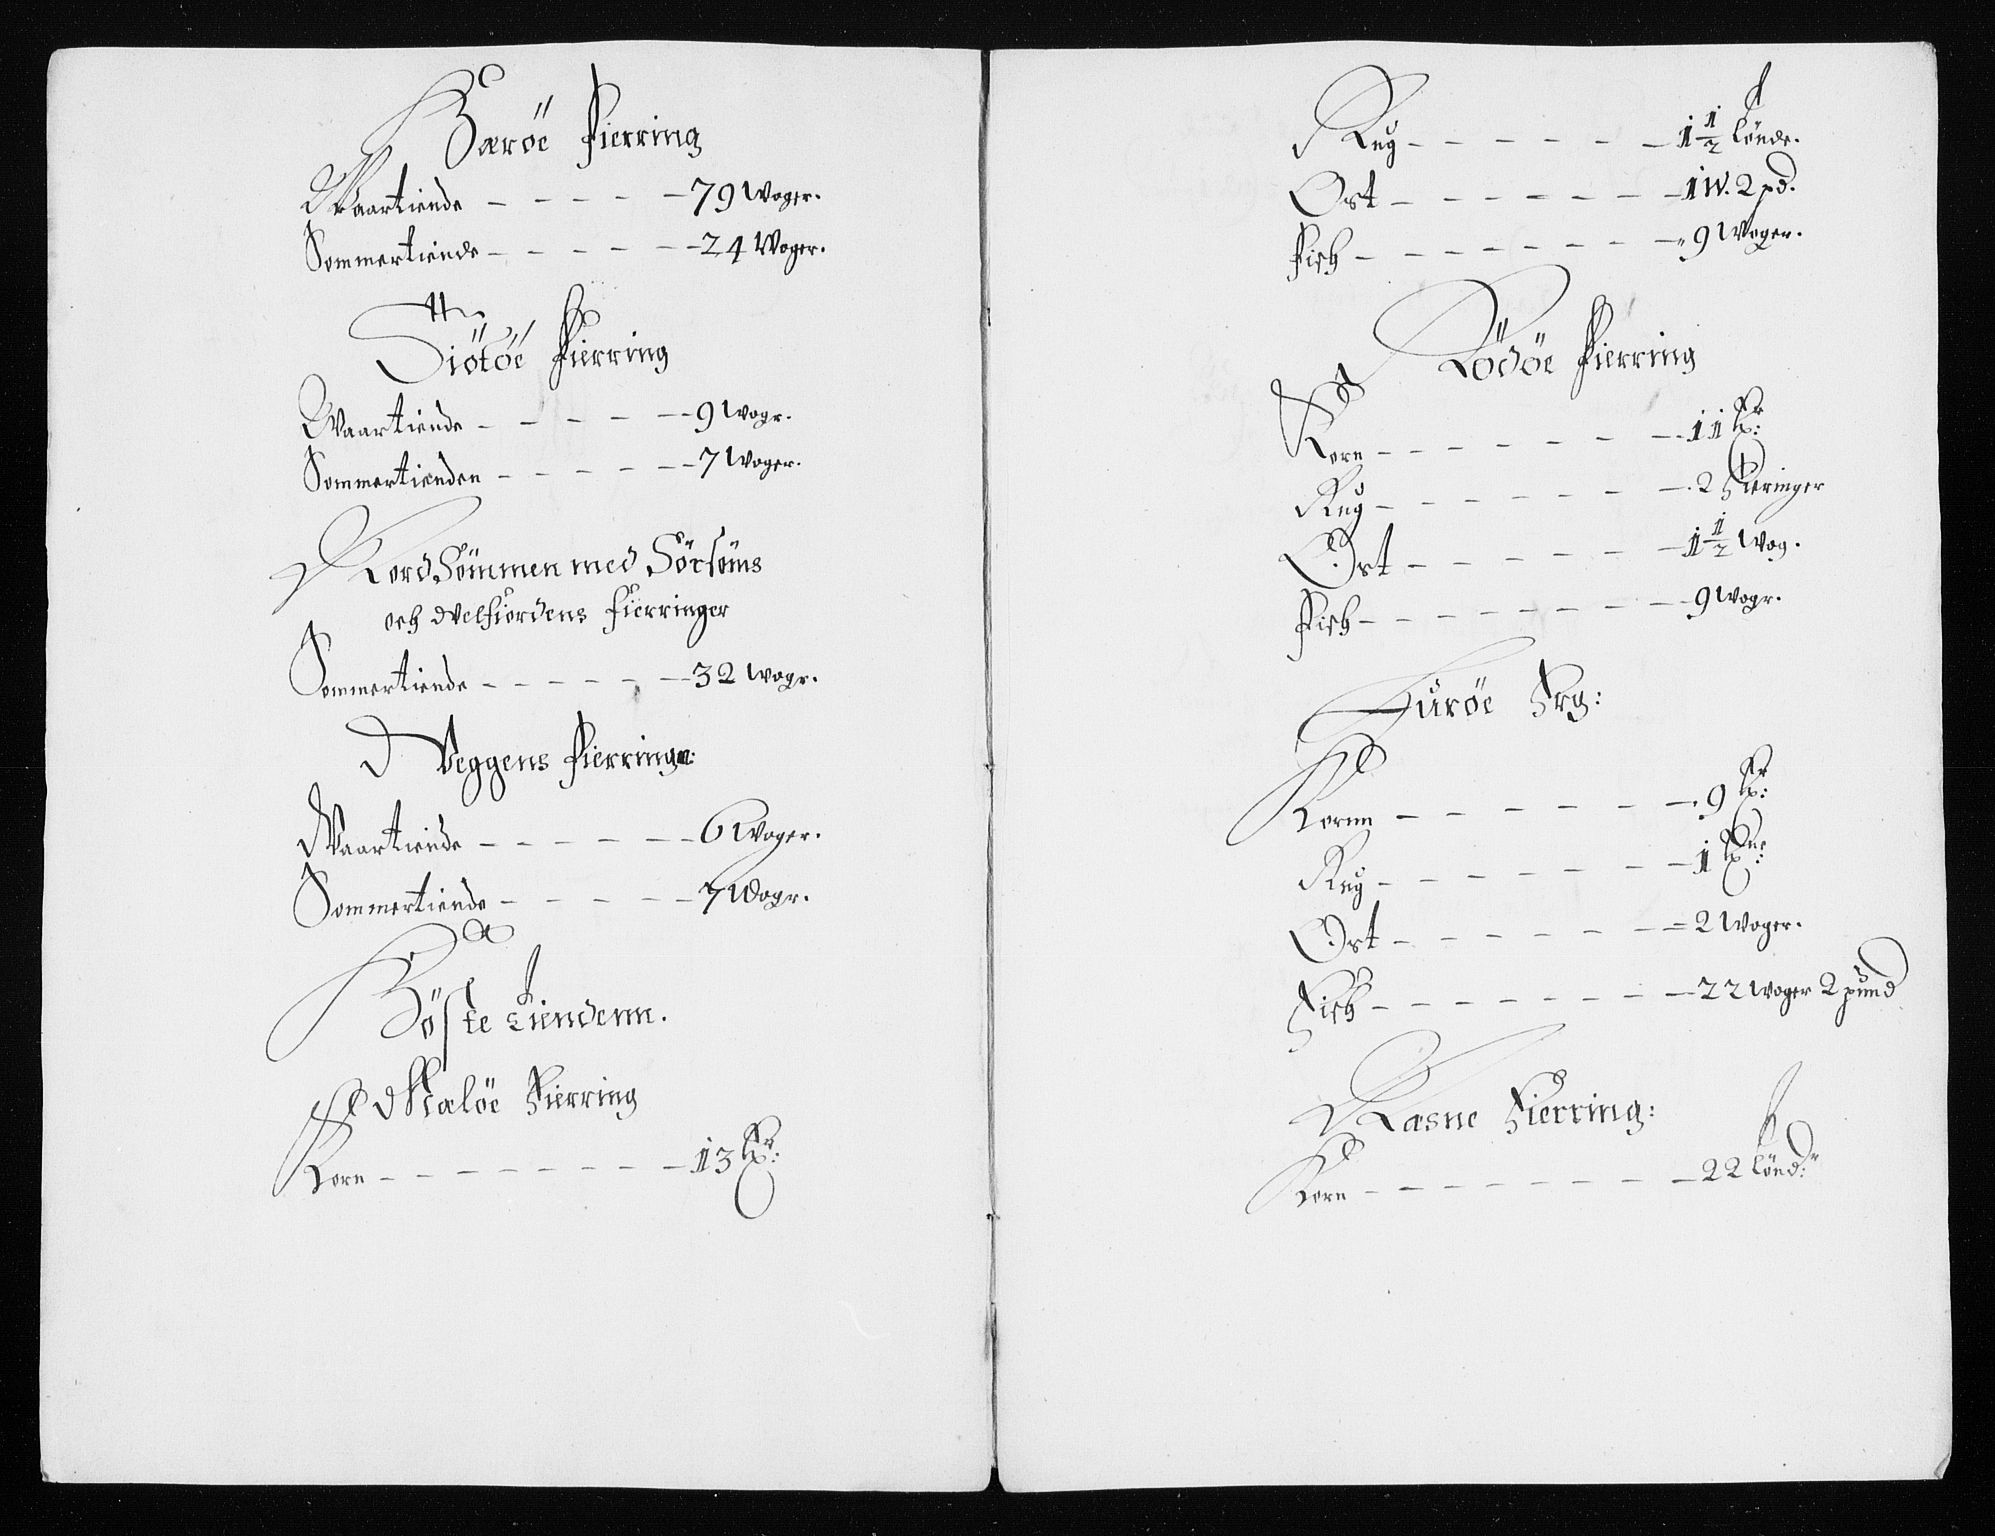 Barøe Fierring
Waartiende - - - - - 79 Woger.
Sommertiende - - - - - 24 Woger.
Tiötöe Fierring
Waartiende - - - - - 9 Wogr.
Sommertienden - - - - - 7 Woger.
Nord Sömmen med Sörsöms
och Velfiordens Fierringer
Sommertiende - - - - - 32 Wogr.
Veggens Fierring:
Waartiende - - - - - 6 Woger.
Sommertiende - - - - - 7 Wogr.
Höste tiendenn.
Meløe Fierring
Korn - - - - - - - 13 Tr:
Rug - - - - - - 1 1/2 tönde.
Ost - - - - - - - 1 W. 2 pd.
Fisk - - - - - - - 9 Woger.
Rödöe Fierring
Korn - - - - - - 11 Tr:
Rug - - - - - - - 2 Fieringer
Ost - - - - - - 1 1/2 Wog.
Fisk - - - - - - - 9 Wogr.
Luröe Frg:
Kornn - - - - - - - 9 Tr:
Rug - - - - - - - 1 Tne:
Ost - - - - - - - 2 Woger.
Fisk - - - - - - - 22 Woger 2 pund
Næsne Fierring:
Korn - - - - - - - - 22 töndr: